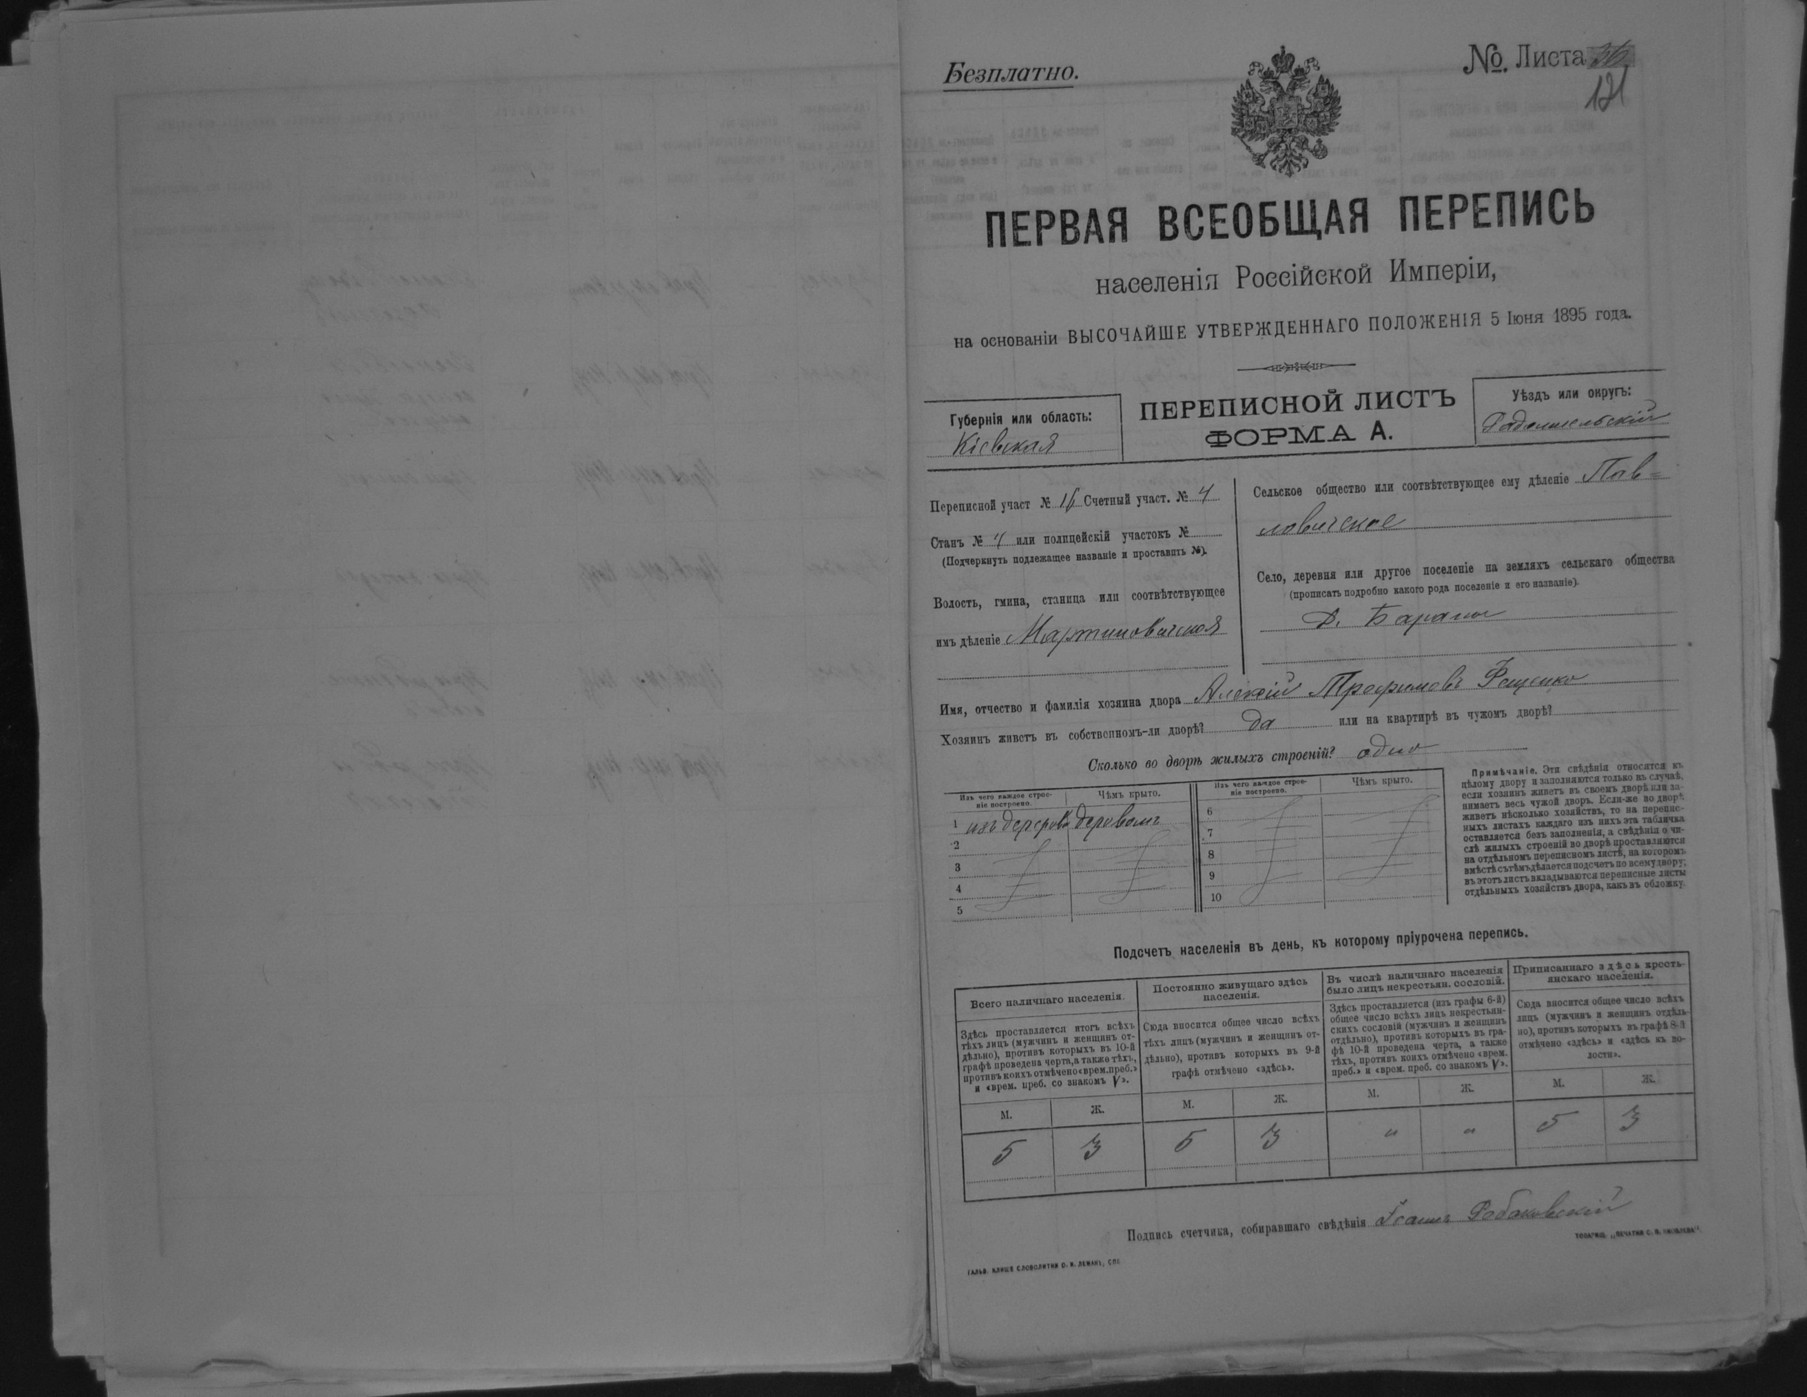 Безплатно.
№ Листа 36
121
ПЕРВАЯ ВСЕОБЩАЯ ПЕРЕПИСЬ
населенія Россійской Имперіи,
на основаніи ВЫСОЧАЙШЕ УТВЕРЖДЕННАГО ПОЛОЖЕНІЯ 5 Іюня 1895 года.
Губернія или область:
Кіевская
ПЕРЕПИСНОЙ ЛИСТЪ
ФОРМА А.
Уѣздъ или округъ:
Радомысльскій
Переписной участ № 16 Счетный участ. № 4
Станъ № 4 или полицейскій участокъ №
(Подчеркнуть подлежащее названіе и проставить №).
Волость, гмина, станица или соотвѣтствующее
имъ дѣленіе Мартиновичская
Сельское общество или соотвѣтствующее ему дѣленіе Пав=
ловичское
Село, деревня или другое поселеніе на земляхъ сельскаго общества
(прописать подробно какого рода поселеніе и его названіе).
Д. Бараны
Имя, отчество и фамилія хозяина двора Алексій Трофимовъ Фещенко
Хозяинъ живетъ въ собственномъ-ли дворѣ? да или на квартирѣ въ чужомъ дворѣ?
Сколько во дворѣ жилыхъ строеній? одно
Изъ чего каждое строе-
ніе построено.
Чѣмъ крыто.
Изъ чего каждое строе-
ніе построено.
Чѣмъ крыто.
1 изъ дерева деревомъ
2
3
4
5
6
7
8
9
10
Примѣчаніе. Эти свѣдѣнія относятся къ
цѣлому двору и заполняются только въ случаѣ,
если хозяинъ живетъ въ своемъ дворѣ или за-
нимаетъ весь чужой дворъ. Если-же во дворѣ
живетъ нѣсколько хозяйствъ, то на перепис-
ныхъ листахъ каждаго изъ нихъ эта табличка
оставляется безъ заполненія, а свѣдѣнія о чи-
слѣ жилыхъ строеній во дворѣ проставляются
на отдѣльномъ переписномъ листѣ, на которомъ
вмѣстѣ съ тѣмъ дѣлается подсчетъ по всему двору;
въ этотъ листъ вкладываются переписные листы
отдѣльныхъ хозяйствъ двора, какъ въ обложку.
Подсчетъ населенія въ день, къ которому пріурочена перепись.
Всего наличнаго населенія.
Здѣсь проставляется итогъ всѣхъ
тѣхъ лицъ (мужчинъ и женщинъ от-
дѣльно), противъ которыхъ въ 10-й
графѣ проведена черта, а также тѣхъ,
противъ коихъ отмѣчено «врем. преб.»
и «врем. преб. со знакомъ V».
Постоянно живущаго здѣсь
населенія.
Сюда вносится общее число всѣхъ
тѣхъ лицъ (мужчинъ и женщинъ от-
дѣльно), противъ которыхъ въ 9-й
графѣ отмѣчено «здѣсь».
Въ числѣ наличнаго населенія
было лицъ некрестьян. сословій.
Здѣсь проставляется (изъ графы 6-й)
общее число всѣхъ лицъ некрестьян-
скихъ сословій (мужчинъ и женщинъ
отдѣльно), противъ которыхъ въ гра-
фѣ 10-й проведена черта, а также
тѣхъ, противъ коихъ отмѣчено «врем.
преб.» и «врем. преб. со знакомъ V».
Приписаннаго здѣсь кресть-
янскаго населенія.
Сюда вносится общее число всѣхъ
лицъ (мужчинъ и женщинъ отдѣль-
но), противъ которыхъ въ графѣ 8-й
отмѣчено «здѣсь» и «здѣсь въ во-
лости».
М. Ж. М. Ж. М. Ж. М. Ж.
5 3 5 3 „ „ 5 3
Подпись счетчика, собиравшаго свѣдѣнія Іоаннъ Рабаковскій
ГАЛЬВ. КЛИШЕ СЛОВОЛИТНИ О. И. ЛЕМАНЪ, СПБ.
ТОВАРИЩ. „ПЕЧАТНИ С. П. ЯКОВЛЕВА".